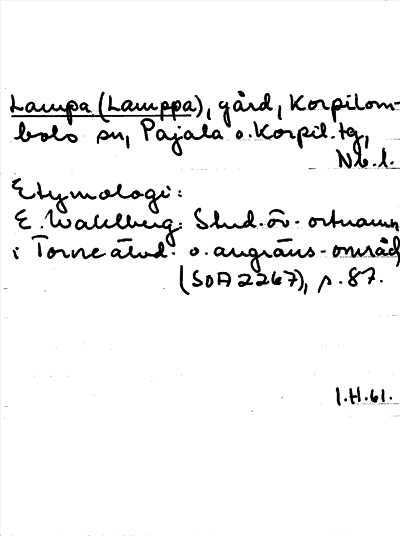 Lampa (Lamppa), gård, Korpilom-
bolo sn, Pajala o. Korpil. tg,
Nb. l.
Etymologi:
E. Wahlberg: Stud. öv. ortnamn
i Torne älvd. o. angräns. områd
(SOA 2267), s. 87.
I.H. 61.